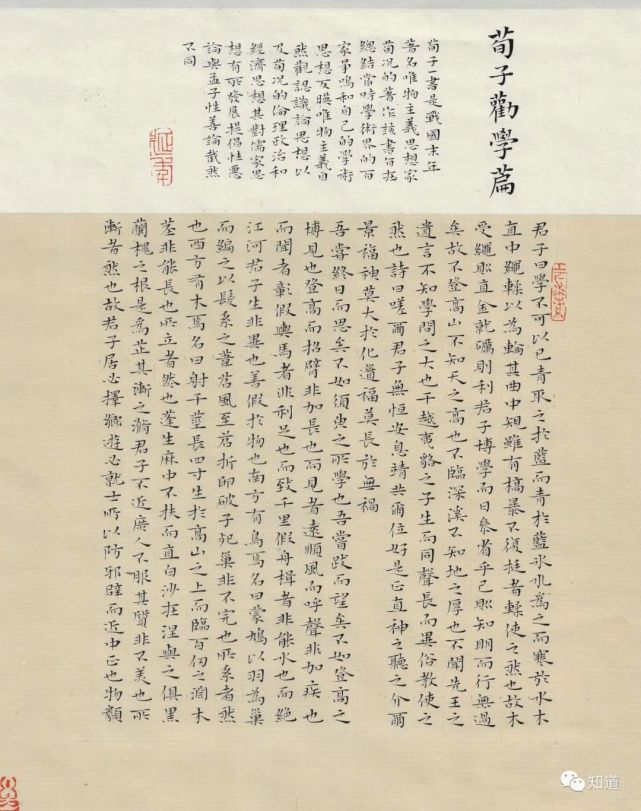 荀子勸學篇
荀子一書是戰國末年
著名唯物主義思想家
荀況的著作該書旨在
總結當時學術界的百
家爭鳴和自己的學術
思想反映唯物主義自
然觀認識論思想以
及荀況的倫理政治和
經濟思想其對儒家思
想有所發展提倡性惡
論與孟子性善論截然
不同
君子曰學不可以已青取之於藍而青於藍水氷為之而寒於水木
直中繩輮以為輪其曲中規雖有槁暴不復挺者輮使之然也故木
受繩則直金就礪則利君子博學而日參省乎己則知明而行無過
矣故不登高山不知天之高也不臨深溪不知地之厚也不聞先王之
遺言不知學問之大也干越夷貉之子生而同聲長而異俗教使之
然也詩曰嗟爾君子無恆安息靖共爾位好是正直神之聽之介爾
景福神莫大於化道福莫長於無禍
吾嘗終日而思矣不如須臾之所學也吾嘗跂而望矣不如登高之
博見也登高而招臂非加長也而見者遠順風而呼聲非加疾也
而聞者彰假輿馬者非利足也而致千里假舟楫者非能水也而絕
江河君子生非異也善假於物也南方有鳥焉名曰蒙鳩以羽為巢
而編之以髮系之葦苕風至苕折卵破子死巢非不完也所系者然
也西方有木焉名曰射干莖長四寸生於高山之上而臨百仞之淵木
莖非能長也所立者然也蓬生麻中不扶而直白沙在涅與之俱黑
蘭槐之根是為芷其漸之滫君子不近庶人不服其質非不美也所
漸者然也故君子居必擇鄉遊必就士所以防邪辟而近中正也物類
知道